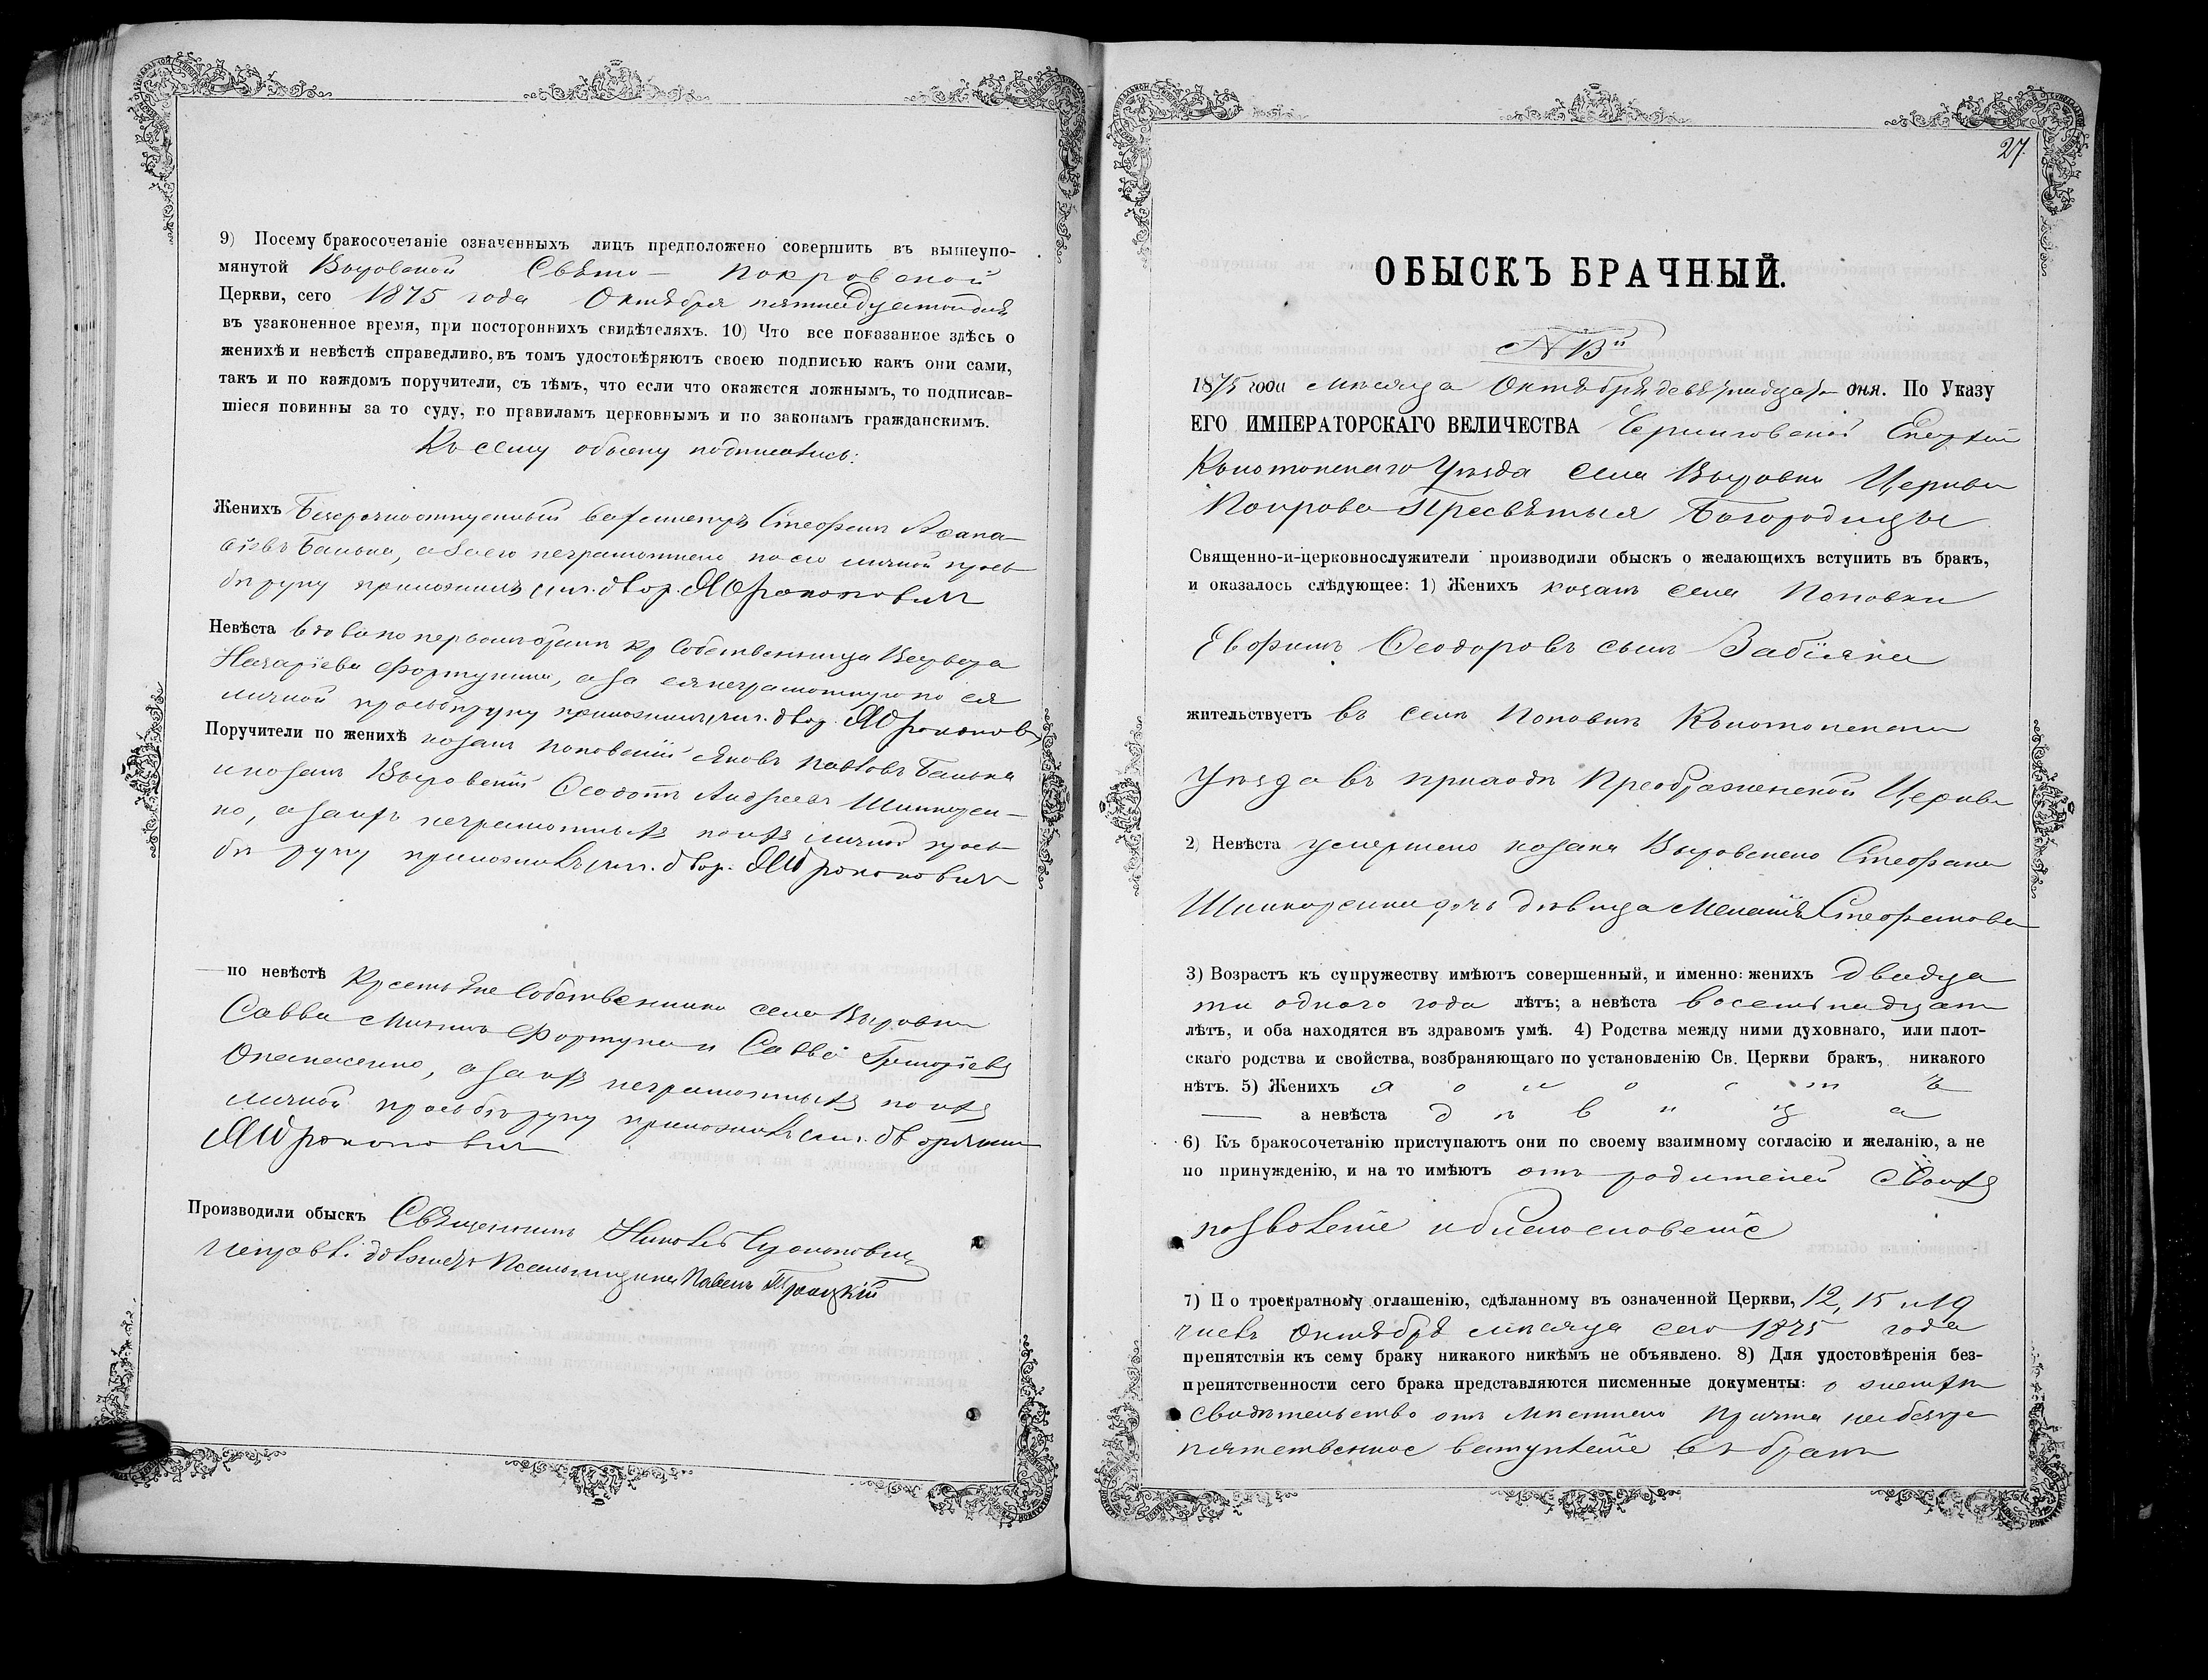 9) Посему бракосочетаніе означенныхъ лицъ предположено совершить въ вышеупо-
мянутой Выровской Свято- Покровской
Церкви, сего 1875 года Октября
въ узаконенное время, при постороннихъ свидѣтеляхъ. 10) Что все показанное здѣсь о
женихѣ и невѣстѣ справедливо, въ томъ удостовѣряютъ своею подписью какъ они сами,
такъ и по каждомъ поручители, съ тѣмъ, что если что окажется ложнымъ, то подписав-
шіеся повинны за то суду, по правиламъ церковнымъ и по законамъ гражданскимъ.
Къ сему обыску подписались:
Женихъ Безсрочноотпускный Стефанъ Афана-
сіевъ Банька, а за его неграмотнаго по его личной прось-
бѣ руку приложилъ двор. Прокоповичъ
Невѣста вдова по первомъ бракѣ кр. собственница Варвара
Назаріева Фортунина, а за ея неграмотную по ея
личной просьбѣ руку приложилъ двор.
Поручители по женихѣ козакъ Поповскій Яковъ Павловъ Банька
и козакъ Выровскій Ѳеодотъ Андреевъ Шинкарен-
ко, а за ихъ неграмотныхъ по ихъ личной прось-
бѣ руку приложилъ двор. Прокоповичъ
по невѣстѣ Крестьяне собственники села Выровки
Савва Фортуна и Савва Григоріевъ
а за ихъ неграмотныхъ по ихъ
личной просьбѣ руку приложилъ дворянинъ
Прокоповичъ
Производили обыскъ Священникъ Николай
Псаломщика Павелъ Троицкій
27.
ОБЫСКЪ БРАЧНЫЙ.
1875 года мѣсяца Октября девятнадцать дня. По Указу
ЕГО ИМПЕРАТОРСКАГО ВЕЛИЧЕСТВА Черниговской Епархіи
Конотопскаго Уѣзда села Выровки Церкви
Покрова Пресвятыя Богородицы
Священно-и-церковнослужители производили обыскъ о желающихъ вступить въ бракъ,
и оказалось слѣдующее: 1) Женихъ козакъ села Поповки
Евфимъ Ѳеодоровъ сынъ Забіяка
жительствуетъ въ селѣ Поповкѣ Конотопскаго
Уѣзда въ приходѣ Преображенской Церкви
2) Невѣста умершаго козака Выровскаго Стефана
Шинкаренка дочь дѣвица Меланія Стефанова
3) Возрастъ къ супружеству имѣютъ совершенный, и именно: женихъ двадца
ти одного года лѣтъ; а невѣста восемнадцать
лѣтъ, и оба находятся въ здравомъ умѣ. 4) Родства между ними духовнаго, или плот-
скаго родства и свойства, возбраняющаго по установленію Св. Церкви бракъ, никакого
нѣтъ. 5) Женихъ холостъ
а невѣста дѣвица
6) Къ бракосочетанію приступаютъ они по своему взаимному согласію и желанію, а не
по принужденію, и на то имѣютъ отъ родителей своихъ
позволеніе и благословеніе
7) По троекратному оглашенію, сдѣланному въ означенной Церкви, 12, 15 и 19
числъ Октября мѣсяца сего 1875 года
препятствія къ сему браку никакого никѣмъ не объявлено. 8) Для удостовѣренія без-
препятственности сего брака представляются писменные документы: о женихѣ
свидѣтельство отъ мѣстнаго Причта на безпре
пятственное вступленіе въ бракъ